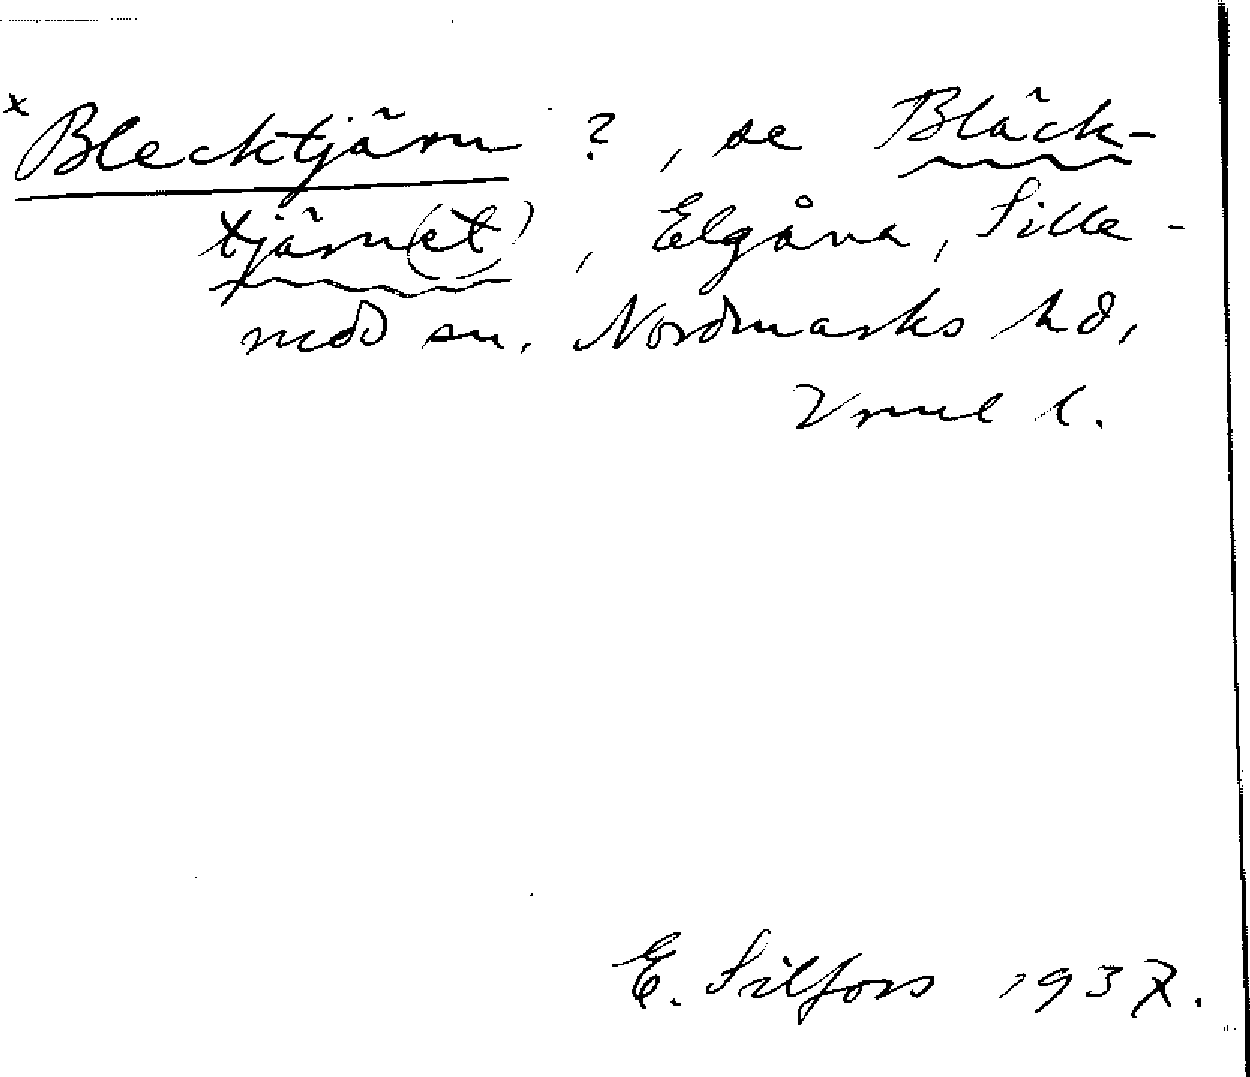 x Blecktjärn ?, se Bläck-
tjärn(et), Elgåna, Sille-
mdd sn. Nordmarks hd,
Vrml l.
E. Silfors 1937.